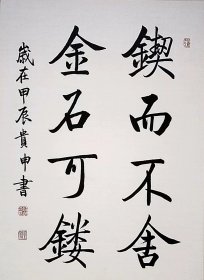 鍥而不舍
金石可鏤
歲在甲辰貴申書